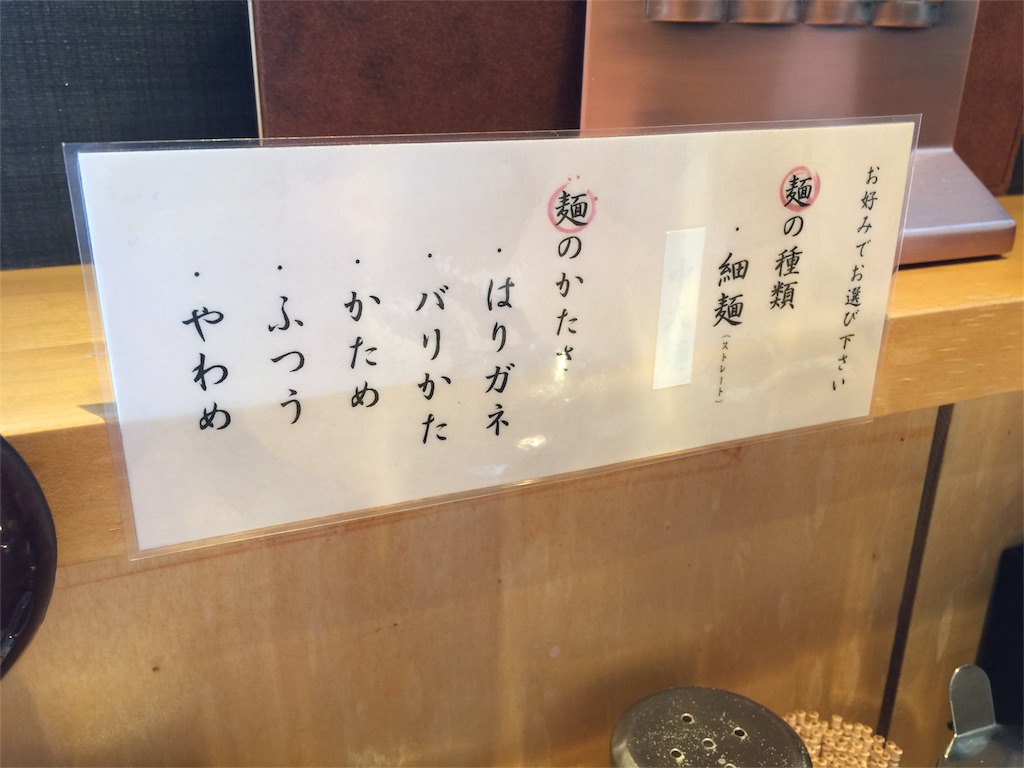 お好みでお選び下さい
麺の種類
・細麺(ストレート)
麺のかたさ
・はりガネ
・バリかた
・かため
・ふつう
・やわめ